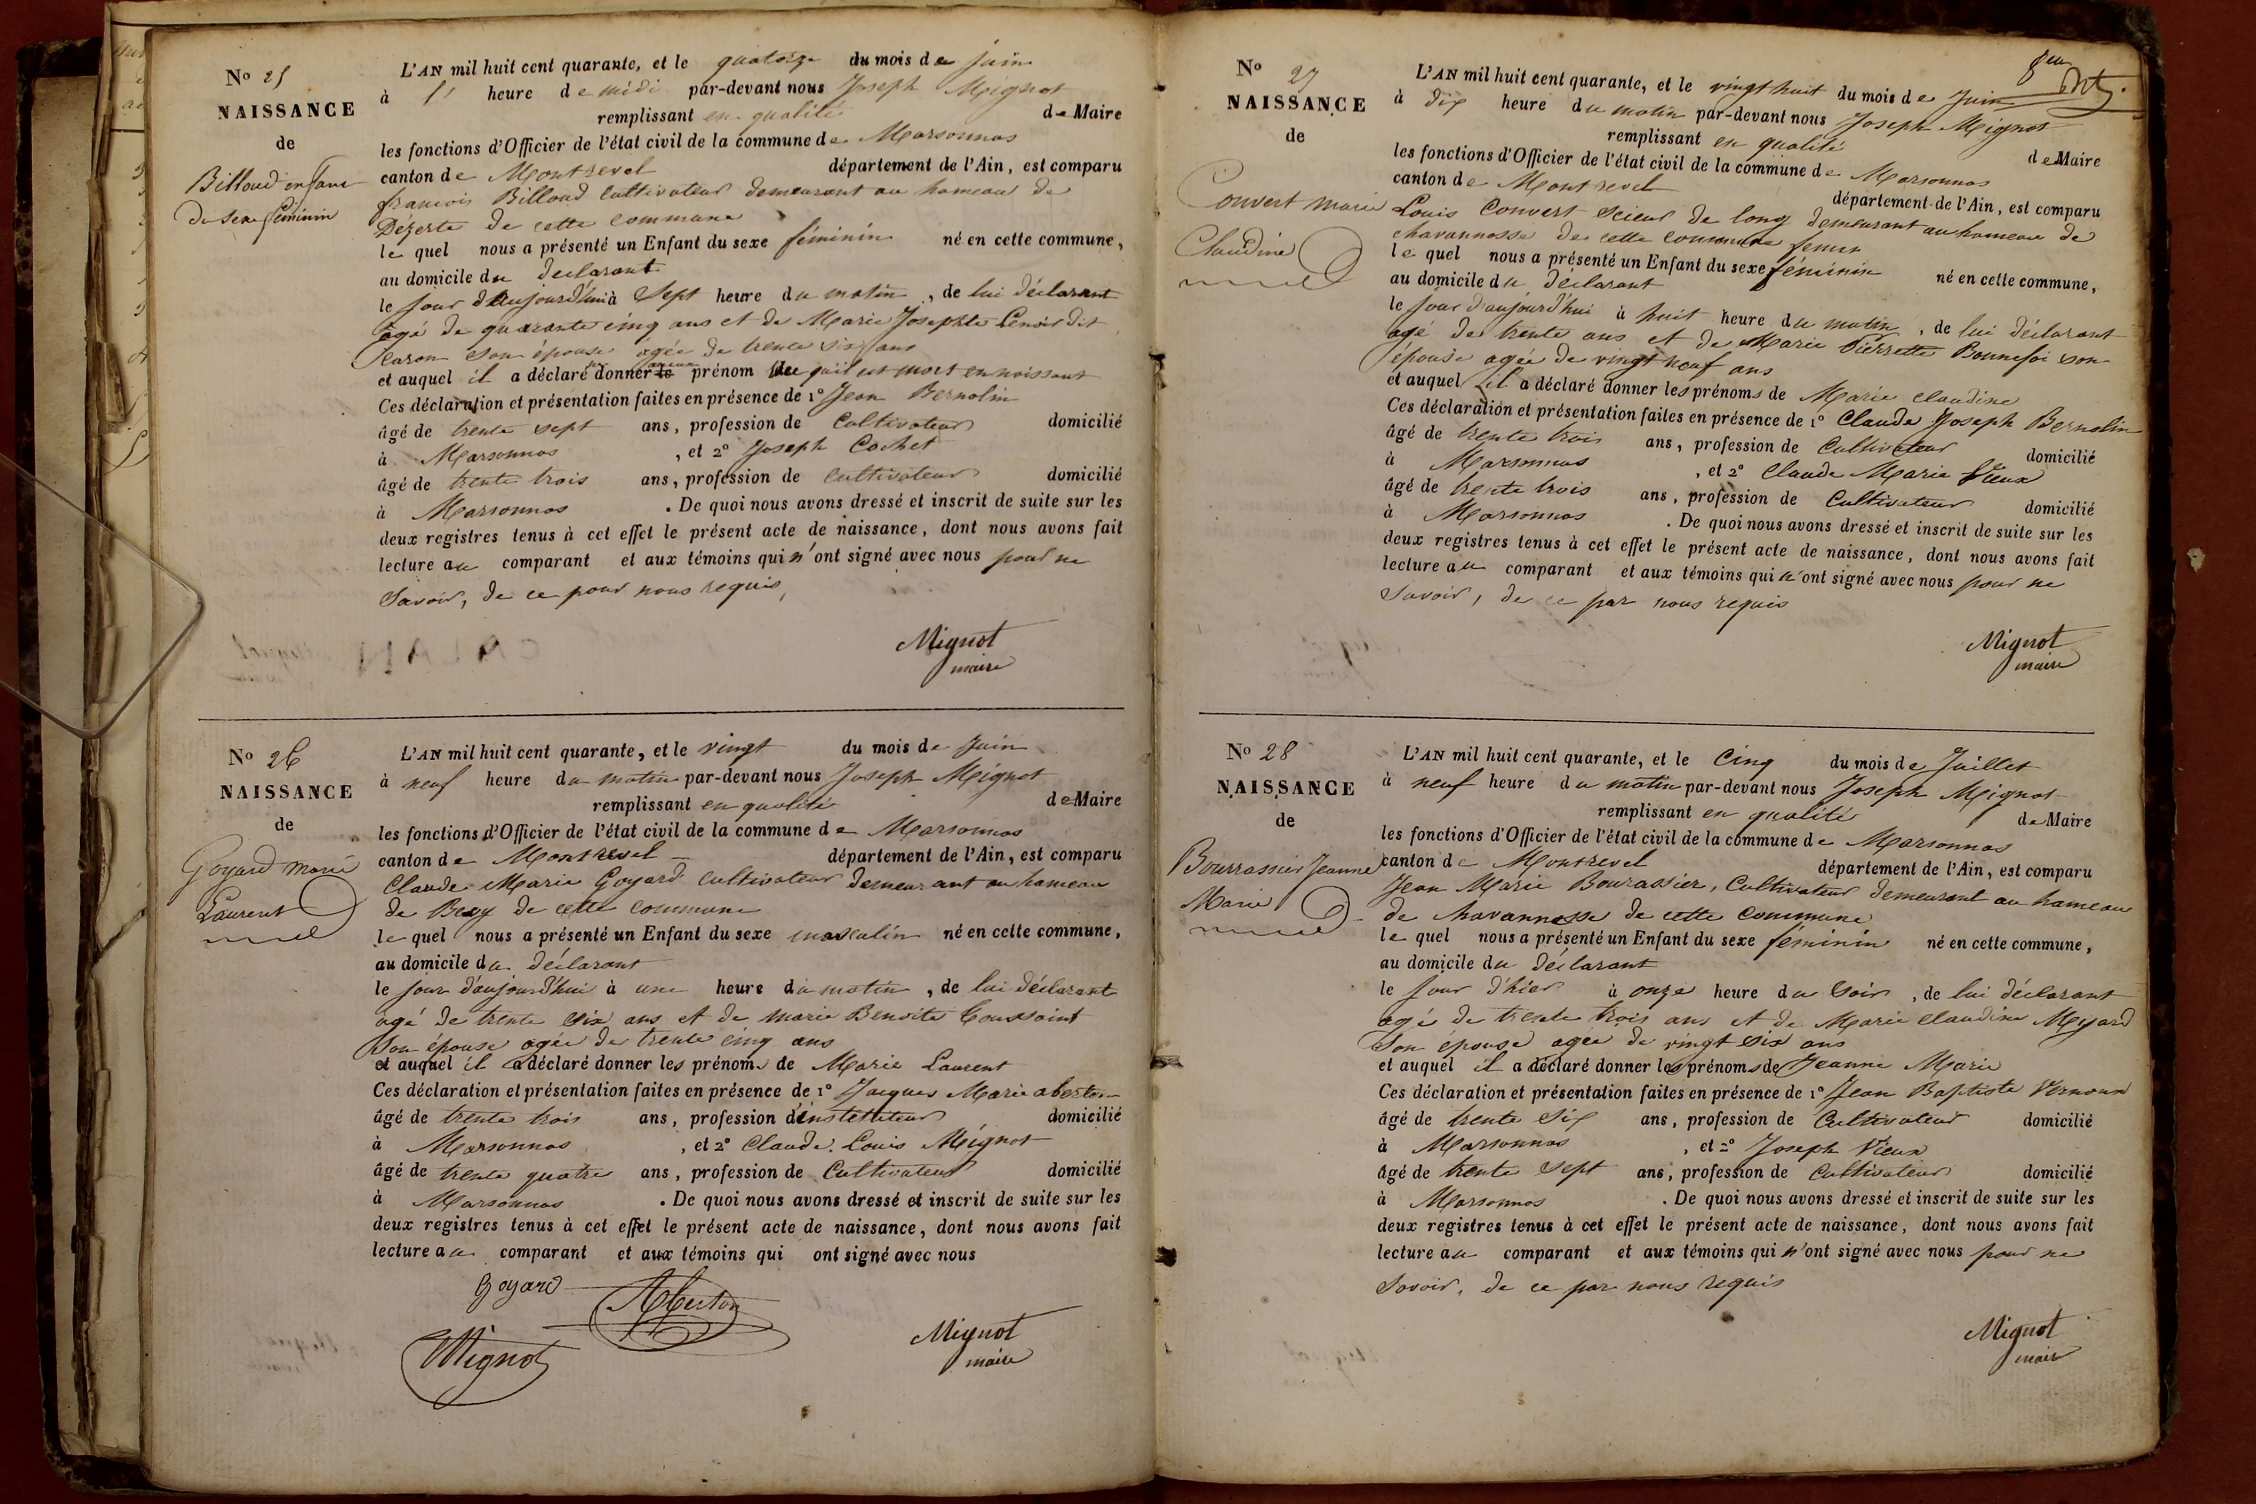 No 25
NAISSANCE
de
Billoud enfant
du sexe féminin
L'AN mil huit cent quarante, et le quatorze du mois de juin
à heure de midi par-devant nous Joseph Mignot
remplissant en qualité de Maire
les fonctions d'Officier de l'état civil de la commune de Marsonnas
canton de Montrevel département de l'Ain, est comparu
francois Billoud Cultivateur demeurant au hameau de
Dézerte de cette commune
le quel nous a présenté un Enfant du sexe féminin né en cette commune,
au domicile du déclarant
le jour d'aujourd'hui à Sept heure du matin, de lui déclarant
âgé de quarante cinq ans et de Marie Josephte Lenoir dit
son épouse agée de trente six ans
et auquel il a déclaré donner prénom qu'il est mort en naissant
Ces déclaration et présentation faites en présence de 1º Jean Bernolin
âgé de trente sept ans, profession de Cultivateur domicilié
à Marsonnas, et 2º Joseph Cochet
âgé de trente trois ans, profession de Cultivateur domicilié
à Marsonnas. De quoi nous avons dressé et inscrit de suite sur les
deux registres tenus à cet effet le présent acte de naissance, dont nous avons fait
lecture au comparant et aux témoins qui n'ont signé avec nous pour ne
Savoir, de ce pour nous requis,
Mignot
maire
No 26
NAISSANCE
de
Goyard Marie
Laurent
L'AN mil huit cent quarante, et le vingt du mois de Juin
à neuf heure du matin par-devant nous Joseph Mignot
remplissant en qualité de Maire
les fonctions d'Officier de l'état civil de la commune de Marsonnas
canton de Montrevel département de l'Ain, est comparu
Claude Marie Goyard Cultivateur demeurant au hameau
de de cette commune
le quel nous a présenté un Enfant du sexe masculin né en cette commune,
au domicile du déclarant
le jour d'aujourd'hui à une heure du matin, de lui déclarant
agé de trente six ans et de Marie Benoite Toussaint
Son épouse agée de trente cinq ans
et auquel il a déclaré donner les prénoms de Marie Laurent
Ces déclaration et présentation faites en présence de 1º Jacques Marie aberton
âgé de trente trois ans, profession d'instituteur domicilié
à Marsonnas, et 2º Claude Louis Mignot
âgé de trente quatre ans, profession de Cultivateur domicilié
à Marsonnas. De quoi nous avons dressé et inscrit de suite sur les
deux registres tenus à cet effet le présent acte de naissance, dont nous avons fait
lecture au comparant et aux témoins qui ont signé avec nous
Goyard
Aberton
Mignot
Mignot
maire
No 27
NAISSANCE
de
Convert Marie
Claudine
L'AN mil huit cent quarante, et le vingt huit du mois de Juin
à dix heure du matin par-devant nous Joseph Mignot
remplissant en qualité de Maire
les fonctions d'Officier de l'état civil de la commune de Marsonnas
canton de Montrevel département de l'Ain, est comparu
Louis Convert Scieur de long demeurant au hameau de
chavannosse de cette commune
le quel nous a présenté un Enfant du sexe féminin né en cette commune,
au domicile du déclarant
le jour d'aujourd'hui à huit heure du matin, de lui déclarant
agé de trente ans et de Marie Pierrette Bonnefoi son
épouse agée de vingt neuf ans
et auquel il a déclaré donner les prénoms de Marie Claudine
Ces déclaration et présentation faites en présence de 1º Claude Joseph Bernolin
âgé de trente trois ans, profession de Cultivateur domicilié
à Marsonnas, et 2º Claude Marie Vieux
âgé de trente trois ans, profession de Cultivateur domicilié
à Marsonnas. De quoi nous avons dressé et inscrit de suite sur les
deux registres tenus à cet effet le présent acte de naissance, dont nous avons fait
lecture au comparant et aux témoins qui n'ont signé avec nous pour ne
Savoir, de ce par nous requis
Mignot
maire
No 28
NAISSANCE
de
Bourrassier Jeanne
Marie
L'AN mil huit cent quarante, et le Cinq du mois de Juillet
à neuf heure du matin par-devant nous Joseph Mignot
remplissant en qualité de Maire
les fonctions d'Officier de l'état civil de la commune de Marsonnas
canton de Montrevel département de l'Ain, est comparu
Jean Marie Bourassier, Cultivateur demeurant au hameau
de chavannosse de cette commune
le quel nous a présenté un Enfant du sexe féminin né en cette commune,
au domicile du déclarant
le jour d'hier à onze heure du Soir, de lui déclarant
agé de trente trois ans et de Marie Claudine Miyard
Son épouse agée de vingt six ans
et auquel il a déclaré donner les prénoms de Jeanne Marie
Ces déclaration et présentation faites en présence de 1º Jean Baptiste Vernoux
âgé de trente Six ans, profession de Cultivateur domicilié
à Marsonnas, et 2º Joseph Vieux
âgé de trente Sept ans, profession de Cultivateur domicilié
à Marsonnas. De quoi nous avons dressé et inscrit de suite sur les
deux registres tenus à cet effet le présent acte de naissance, dont nous avons fait
lecture au comparant et aux témoins qui n'ont signé avec nous pour ne
Savoir, de ce par nous requis
Mignot
maire